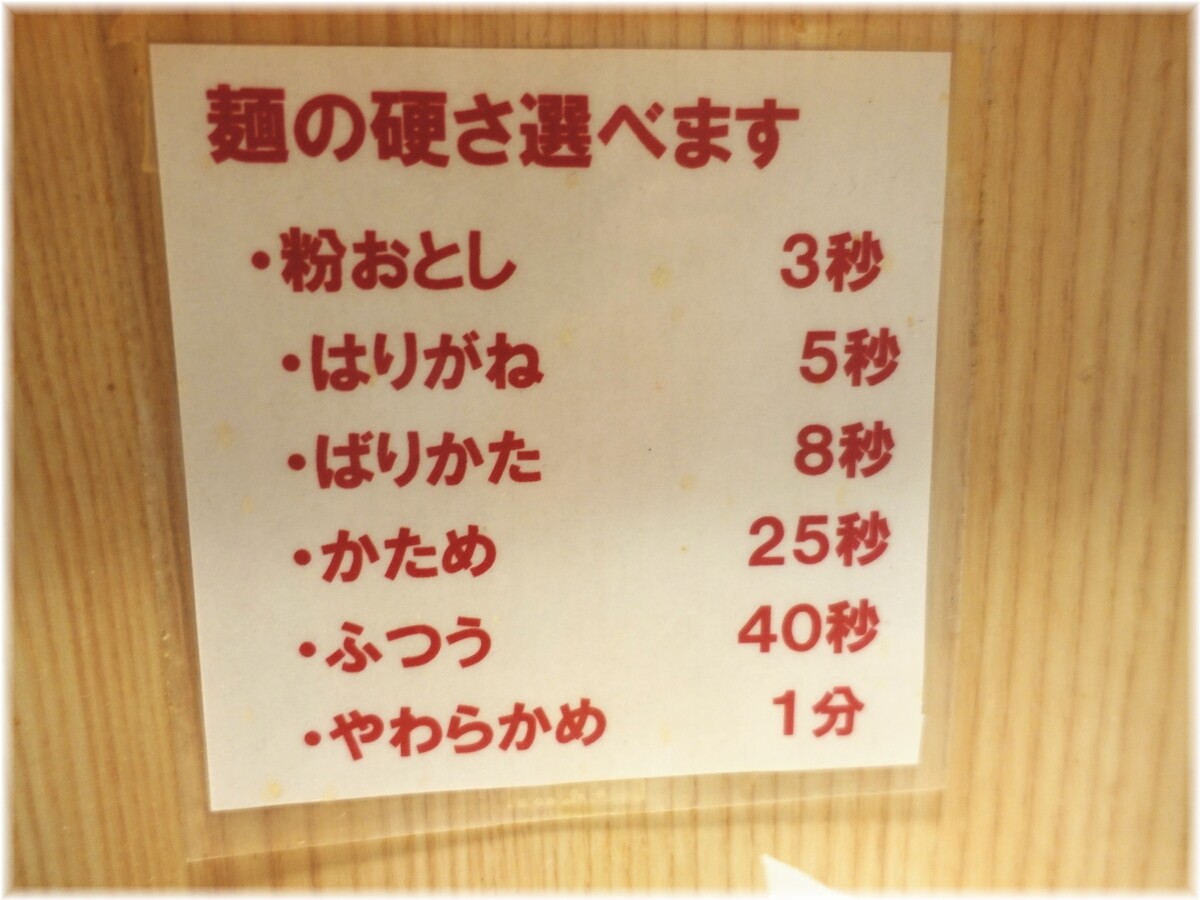 麺の硬さ選べます
・粉おとし 3秒
・はりがね 5秒
・ばりかた 8秒
・かため 25秒
・ふつう 40秒
・やわらかめ 1分